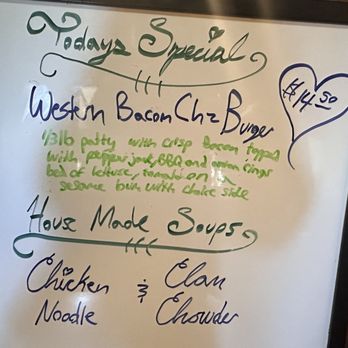 Todays Special
$14 50
Western Bacon Chz Burger
1/3lb patty with crisp Bacon topped
with pepper jack, BBQ and onion rings
bed of letuce, tomato on a
sesame bun with choice side
House Made Soups
Chicken & Clam
Noodle Chowder